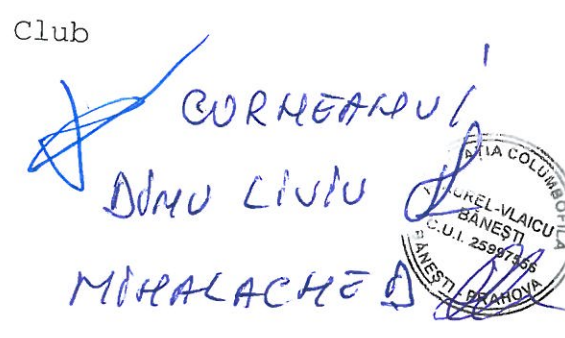 Club
CORNEANU I
DINU LIVIU
MIHALACHE D
ȚIA COLUMBOFILA
AUREL-VLAICU
BĂNEȘTI
C.U.I. 25997566
BĂNEȘTI - PRAHOVA